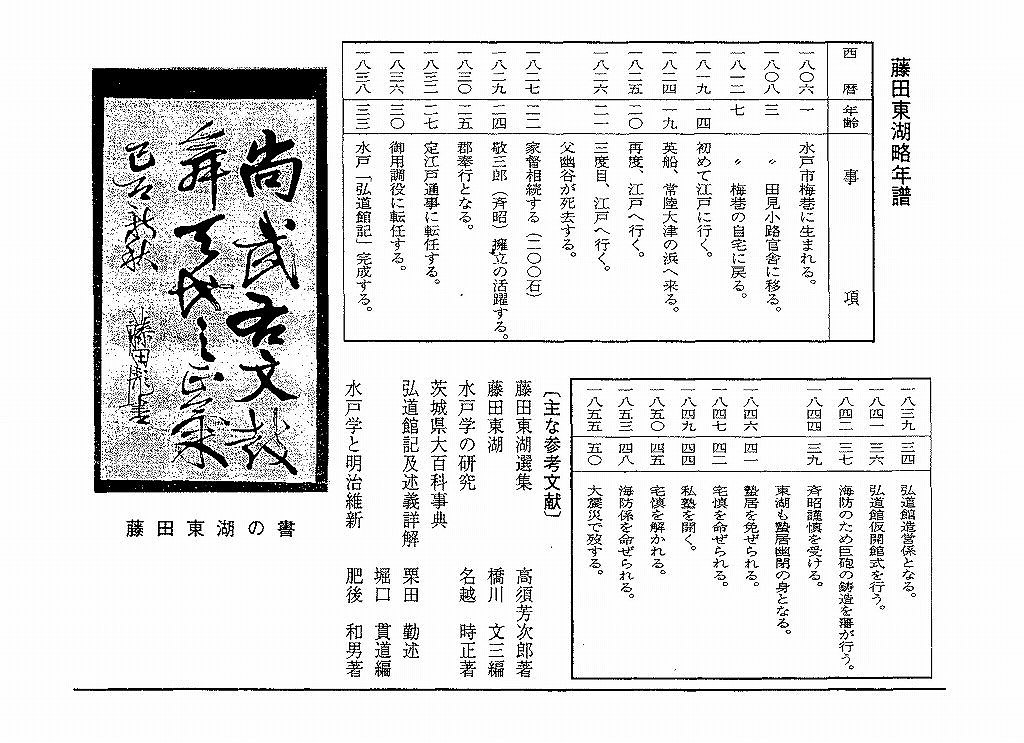 藤田東湖略年譜
西暦 年齢 事項
一八〇六 一 水戸市梅巷に生まれる。
一八〇八 三 〃 田見小路官舎に移る。
一八一二 七 〃 梅巷の自宅に戻る。
一八一九 一四 初めて江戸に行く。
一八二四 一九 英船、常陸大津の浜へ来る。
一八二五 二〇 再度、江戸へ行く。
一八二六 二一 三度目、江戸へ行く。
父幽谷が死去する。
一八二七 二二 家督相続する（二〇〇石）
一八二九 二四 敬三郎（斉昭）擁立の活躍する。
一八三〇 二五 郡奉行となる。
一八三二 二七 定江戸通事に転任する。
一八三六 三〇 御用調役に転任する。
一八三八 三三 水戸「弘道館記」完成する。
一八三九 三四 弘道館造営係となる。
一八四一 三六 弘道館仮開館式を行う。
一八四二 三七 海防のため巨砲の鋳造を藩が行う。
一八四四 三九 斉昭謹慎を受ける。
東湖も蟄居幽閉の身となる。
一八四六 四一 蟄居を免ぜられる。
一八四七 四二 宅慎を命ぜられる。
一八四九 四四 私塾を開く。
一八五〇 四五 宅慎を解かれる。
一八五三 四八 海防係を命ぜられる。
一八五五 五〇 大震災で歿する。
〔主な参考文献〕
藤田東湖選集 高須芳次郎著
藤田東湖 橋川 文三編
水戸学の研究 名越 時正著
茨城県大百科事典
弘道館記及述義詳解 栗田 勤述
堀口 貫道編
水戸学と明治維新 肥後 和男著
尚武右文鼓
舞天地之正氣
藤田彪
藤田東湖の書